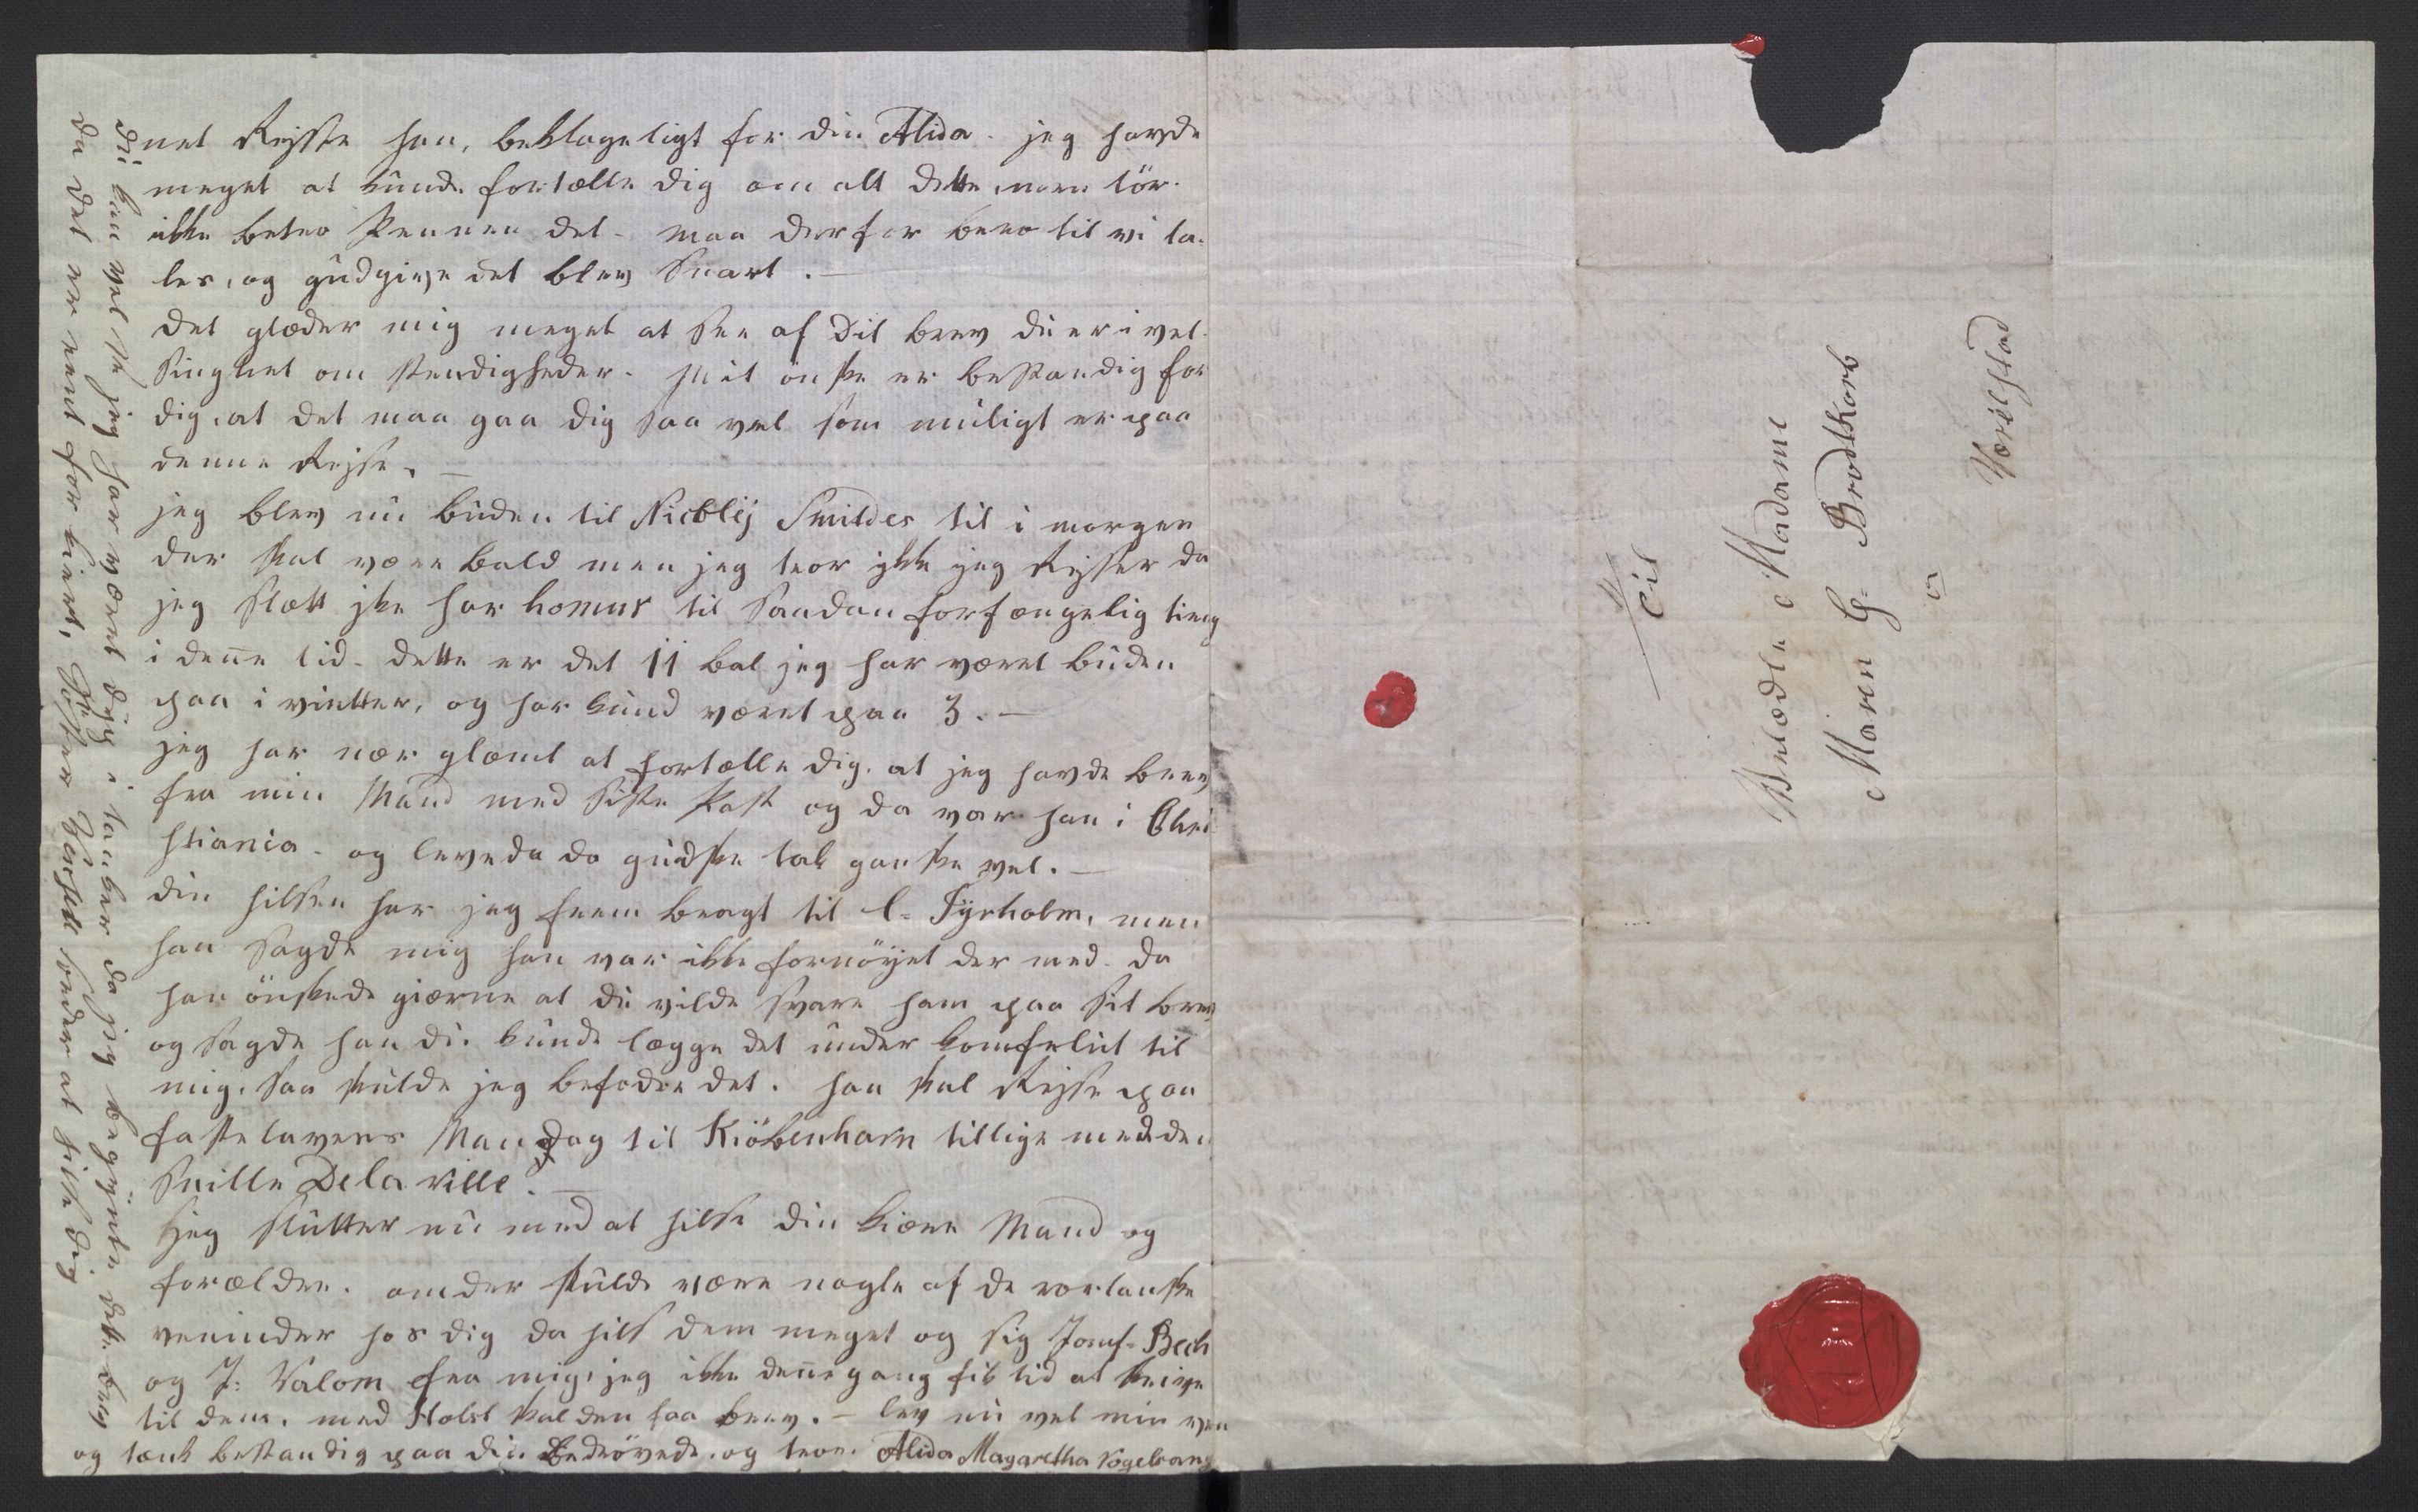 net Rejste han, beklageligt for din Alida. jeg havde
meget at kunde fortælle dig om alt dette, men tör
ikke betro Pennen det. maa derfor bero til vi ta-
les, og gudgive det blev snart. —
det glæder mig meget at see af Dit brev du er i vel-
singnet om stendigheder. Mit önske er bestandig for
dig, at det maa gaa dig saa vel som muligt er paa
denne Rejse. —
jeg blev nu buden til Smildes til i morgen
der skal være bald men jeg tror ikke jeg Rejser da
jeg slætt jke har homur til saadan forfængelig ting
i deñe tid. dette er det 11 bal jeg har været buden
paa i vintter, og har kund været paa 3. —
jeg har nær glæmt at fortælle dig, at jeg havde brev
fra min Mand med siste Post og da var han i Chri
stiania. og levede da gudske lab ganske vel. —
din hilsen har jeg frem bragt til C. Tyrholm, men
han sagde mig han var ikke fornöyet der med. da
han önskede giærne at du vilde svare ham paa sit brev
og sagde han du kunde lægge det under komfelut til
mig, saa skulde jeg befodre det. han skal Rejse paa
fastelavens Mandag til Kiöbenhavn tillige med den
snille Delaville. —
Jeg slutter nu med at hilse din kiære Mand og
forældre. om der skulde være nogle af de vorlanske
veninder hos dig da hils dem meget og sig Jomf. Bech
og J: Valom fra mig, jeg ikke deñe gang fik tid at skrive
til dem. med Holst skal den faa brev. — lev nu vel min ven
og tænk bestandig paa din Bedrövede og troe. Alida Magaretha Vogelsang
du kan vel se jeg har været dyb i tanker da jeg begynte dette brev
da det er vent for kiert, Söster beder at hilse dig
Til
Velædle Madame
Maren G. Brodtkorb
i